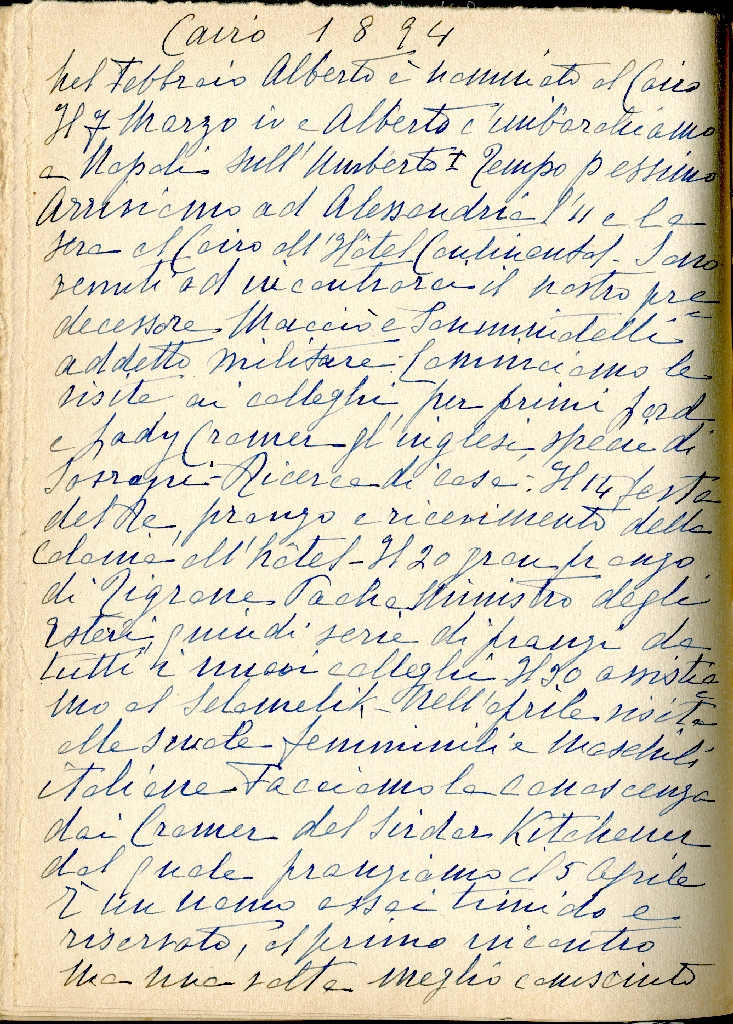 Cairo 1894
Nel Febbraio Alberto è nominato al Cairo
Il 7 Marzo io e Alberto c'imbarchiamo
a Napoli sull'Umberto I Tempo pessimo
Arriviamo ad Alessandria l'11 e la
sera al Cairo all'Hôtel Continental - Sono
venuti ad incontrarci il nostro pre=
decessore Macciò e Somminatelli
addetto militare. Cominciamo le
visite ai colleghi, per primi Lord
e Lady Cromer gl'inglesi, specie di
Sovrani - Ricerca di casa. Il 14 festa
del Re, pranzo e ricevimento della
Colonia all'hôtel - Il 20 gran pranzo
di Tigrane Pacha Ministro degli
Esteri, quindi serie di pranzi da
tutti i nuovi colleghi Il 30 assistia
mo al Selamelik - Nell'aprile visita
alle scuole femminili e maschili
italiane Facciamo la conoscenza
dai Cromer del Sirdar Kitchener
dal quale pranziamo il 5 Aprile
È un uomo assai timido e
riservato, al primo incontro
ma una volta meglio conosciuto